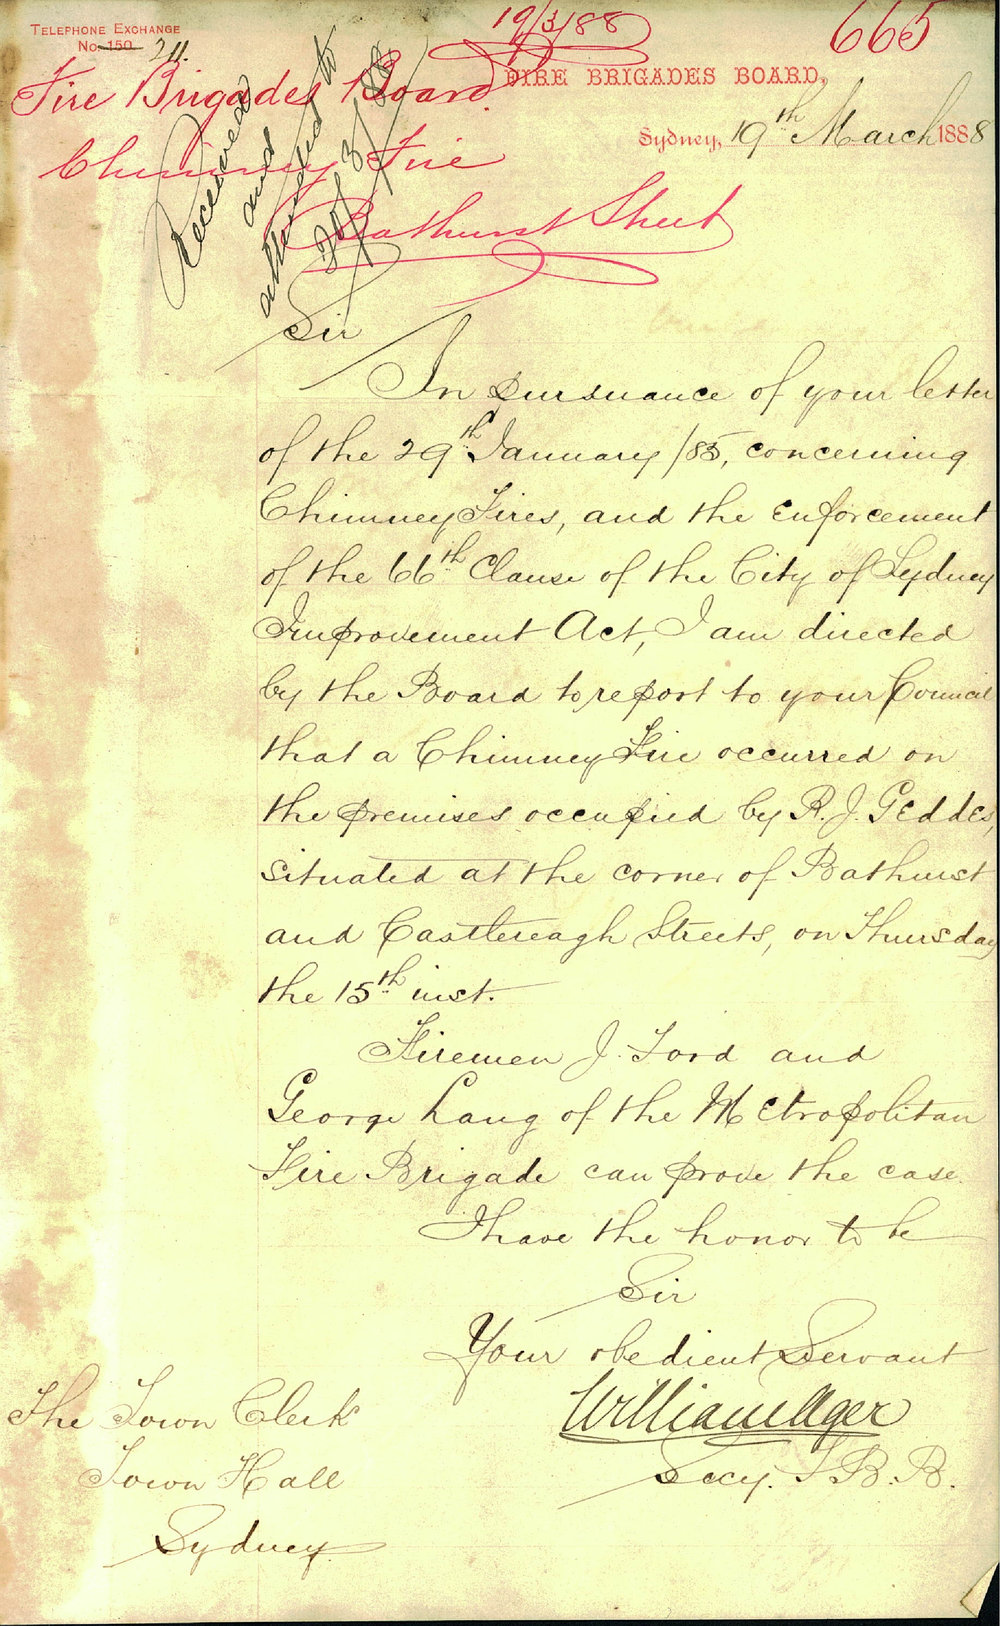 TELEPHONE EXCHANGE
No. 150 211.
19/3/88
665
FIRE BRIGADES BOARD,
Fire Brigades Board.
Sydney, 19th March 1888
Chimney Fire
Bathurst Street
Received
and
attended to
20/3/88
Sir
In pursuance of your letter
of the 29th January /85, concerning
Chimney Fires, and the enforcement
of the 66th Clause of the City of Sydney
Improvement Act, I am directed
by the Board to report to your Council
that a Chimney Fire occurred on
the premises occupied by R. J. Geddes,
situated at the corner of Bathurst
and Castlereagh Streets, on Thursday
the 15th inst.
Firemen J. Ford and
George Lang of the Metropolitan
Fire Brigade can prove the case.
I have the honor to be
Sir
Your obedient Servant
William Ager
Secy. F. B. B.
The Town Clerk
Town Hall
Sydney